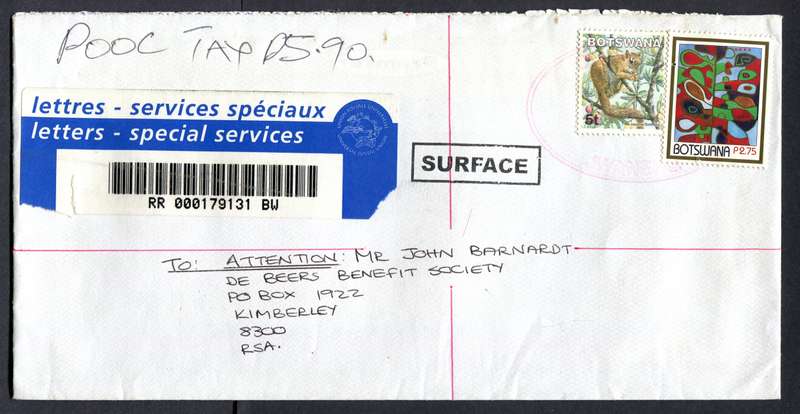 POOC TAX P5.90.
BOTSWANA
5t
BOTSWANA P2.75
lettres - services spéciaux
letters - special services
RR 000179131 BW
SURFACE
TO: ATTENTION: MR JOHN BARNARDT
DE BEERS BENEFIT SOCIETY
PO BOX 1922
KIMBERLEY
8300
RSA.